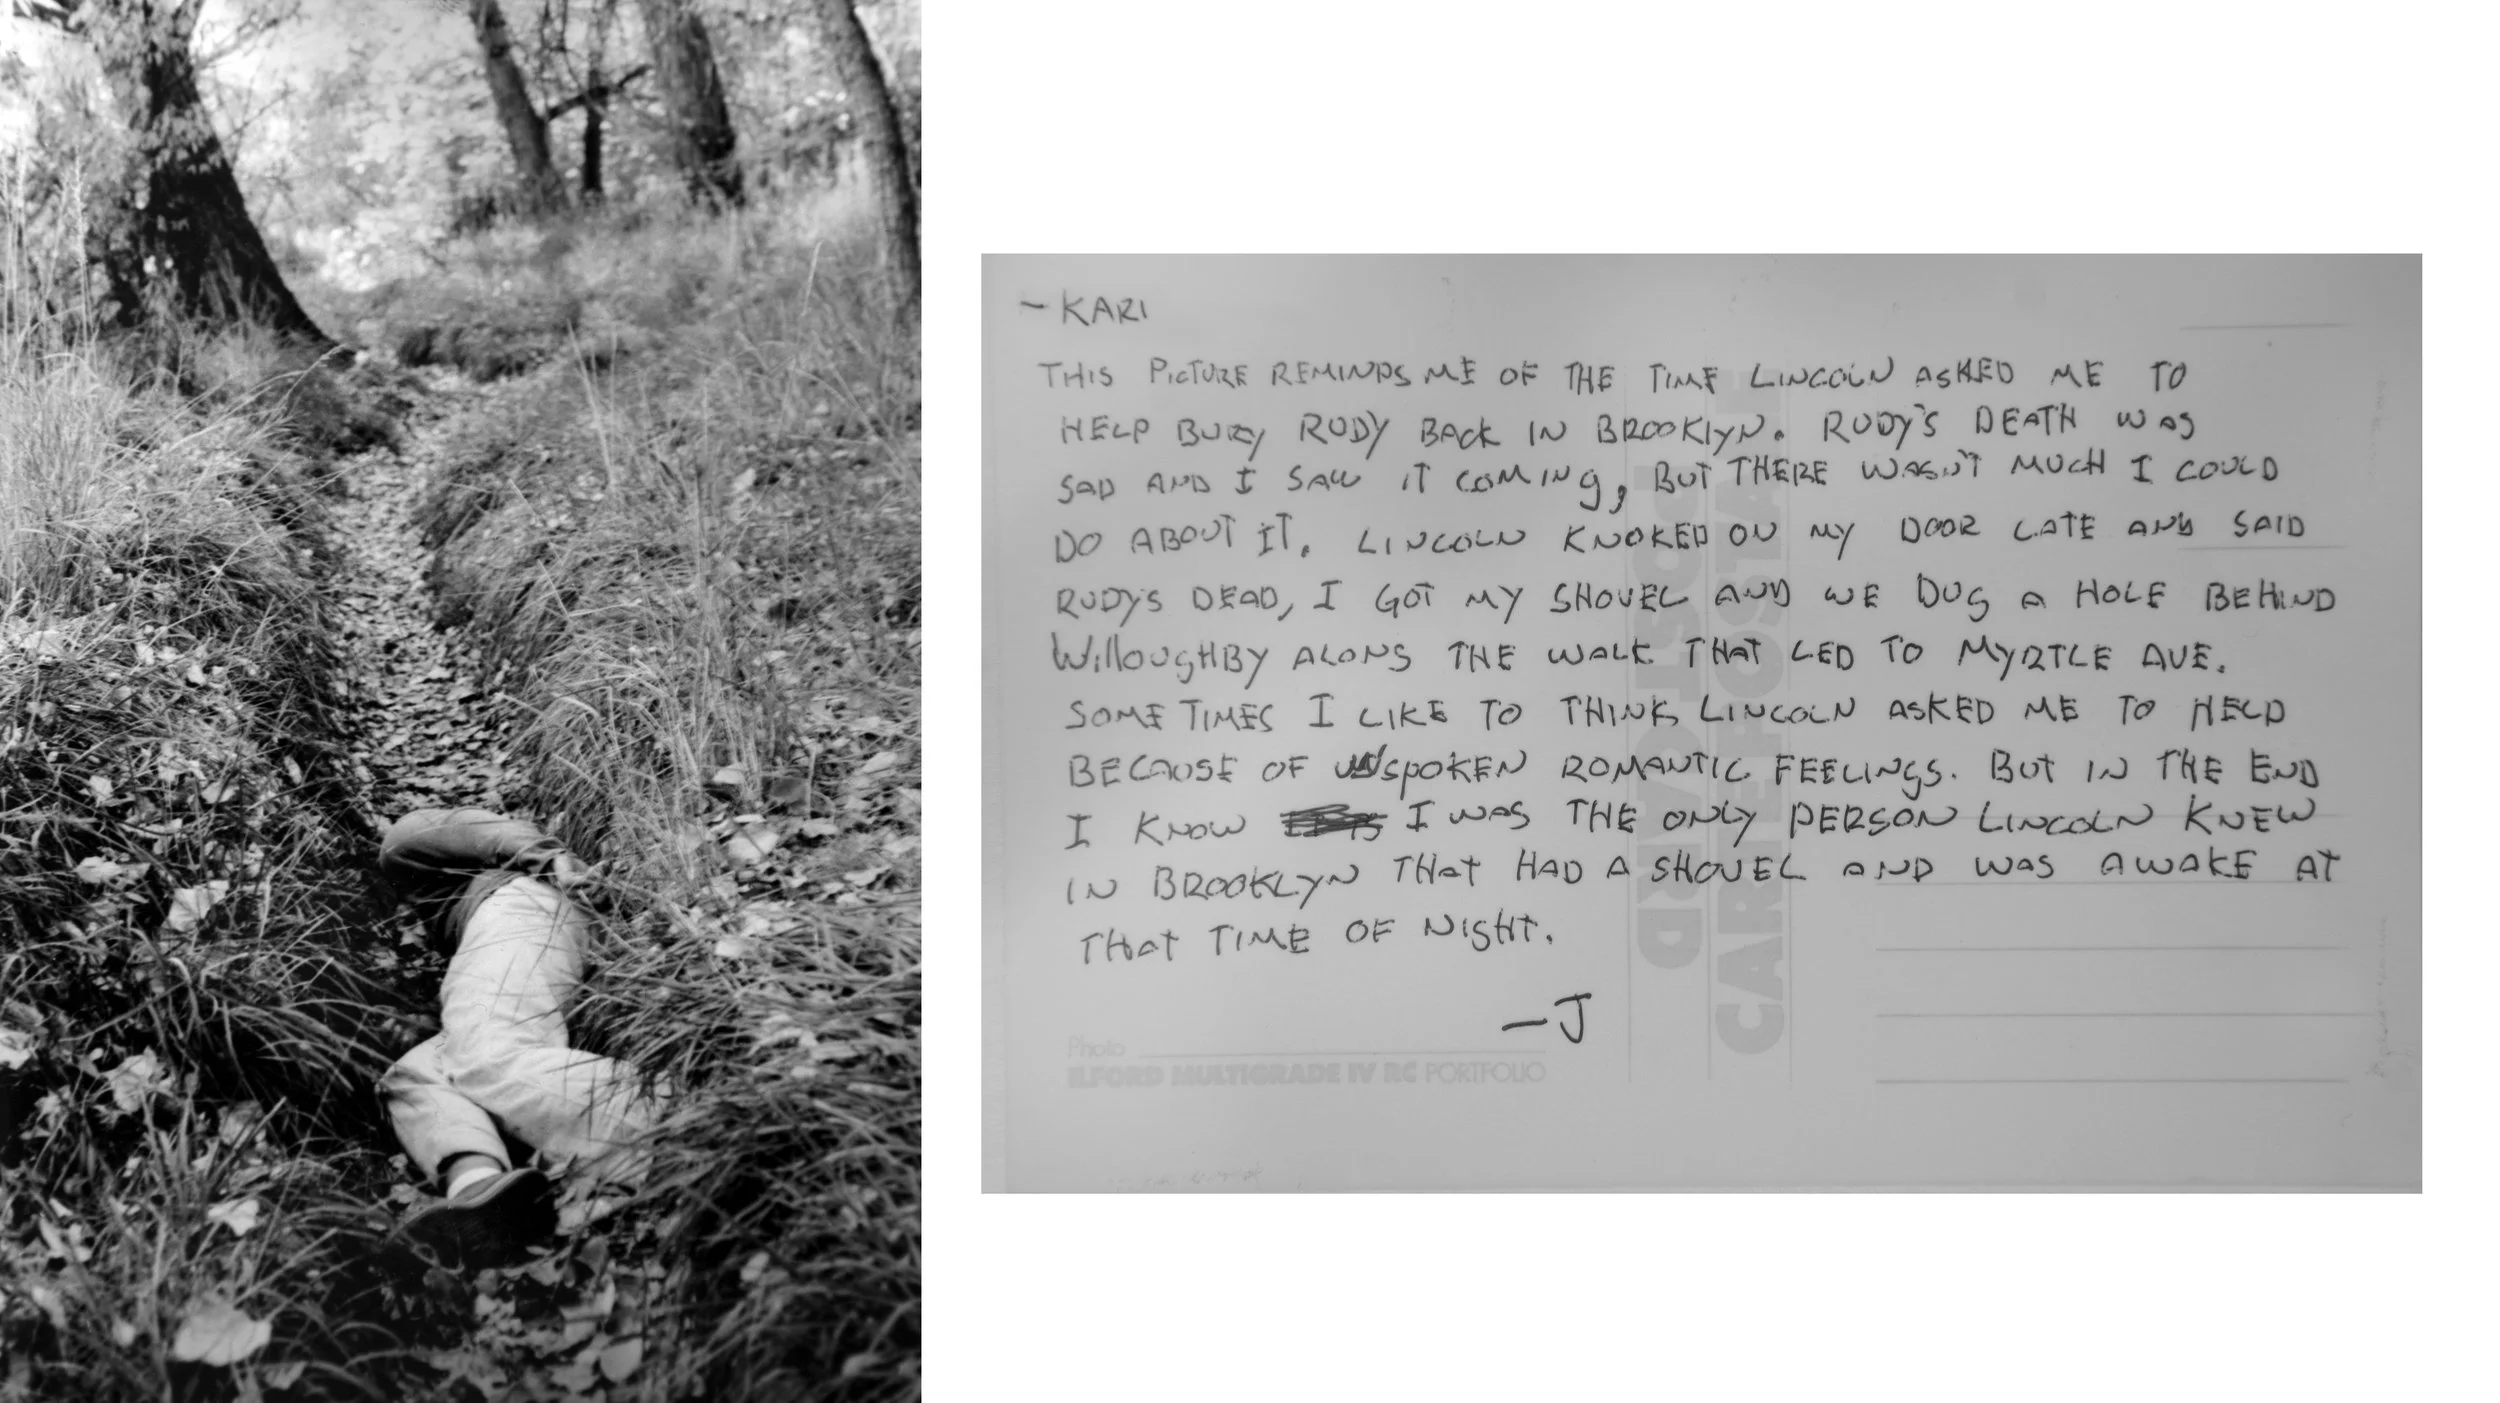 – KARI
THIS PICTURE REMINDS ME OF THE TIME LINCOLN ASKED ME TO
HELP BURY RUDY BACK IN BROOKLYN. RUDY'S DEATH WAS
SAD AND I SAW IT COMING, BUT THERE WASN'T MUCH I COULD
DO ABOUT IT. LINCOLN KNOKED ON MY DOOR LATE AND SAID
RUDY'S DEAD, I GOT MY SHOVEL AND WE DUG A HOLE BEHIND
WILLOUGHBY ALONG THE WALK THAT LED TO MYRTLE AVE.
SOME TIMES I LIKE TO THINK LINCOLN ASKED ME TO HELP
BECAUSE OF UNSPOKEN ROMANTIC FEELINGS. BUT IN THE END
I KNOW I WAS THE ONLY PERSON LINCOLN KNEW
IN BROOKLYN THAT HAD A SHOVEL AND WAS AWAKE AT
THAT TIME OF NIGHT.
– J
POST CARD
CARTE POSTALE
Photo
ILFORD MULTIGRADE IV RC PORTFOLIO